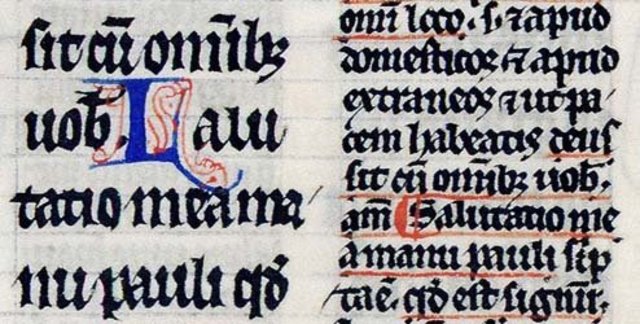 sit cū om̄ibꝫ
uob̄. Lalu
tatio mea ma
nu pauli qđ
om̄i loco .s. ⁊ apud
domesticos ⁊ apud
extraneos ⁊ ut pa
cem habeatis deus
sit cū om̄ibꝫ uob.
am̄ Salutatio me
a manu pauli sc̄p
taē. qđ est signū.